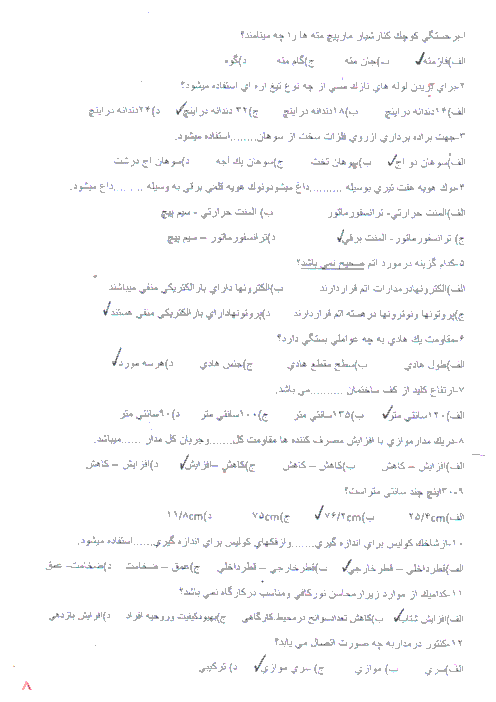 ۱-برجستگي كوچك كنارشيار مارپيچ مته ها را چه مينامند؟
الف)فازمته ب)جان مته ج)گام مته د)گوه
۲-براي بريدن لوله هاي نازك مسي از چه نوع تيغ اره اي استفاده ميشود؟
الف)۱۴دندانه دراينچ ب)۱۸دندانه دراينچ ج)۳۲ دندانه دراينچ د)۲۴دندانه دراينچ
۳-جهت براده برداري ازروي فلزات سخت از سوهان........استفاده ميشود.
الف)سوهان دو اج ب)سوهان تخت ج)سوهان يك آجه د)سوهان اج درشت
۴-نوك هويه هفت تيري بوسيله ..........داغ ميشودونوك هويه قلمي برقي به وسيله .........داغ ميشود.
الف)المنت حرارتي- ترانسفورماتور ب) المنت حرارتي - سيم پيچ
ج) ترانسفورماتور - المنت برقي د)ترانسفورماتور – سيم پيچ
۵-كدام گزينه درمورد اتم صحيح نمي باشد؟
الف)الكترونهادرمدارات اتم قراردارند ب)الكترونها داراي بارالكتريكي منفي ميباشند
ج)پروتونها ونوترونها درهسته اتم قراردارند د)پروتونهاداراي بارالكتريكي منفي هستند
۶-مقاومت يك هادي به چه عواملي بستگي دارد؟
الف)طول هادي ب)سطح مقطع هادي ج)جنس هادي د)هرسه مورد
۷-ارتفاع كليد از كف ساختمان ..........مي باشد.
الف)۱۲۰سانتي متر ب)۱۳۵سانتي متر ج)۱۰۰سانتي متر د)۹۰سانتي متر
۸-دريك مدارموازي با افزايش مصرف كننده ها مقاومت كل.......وجريان كل مدار ......ميباشد.
الف)افزايش – كاهش ب)كاهش – كاهش ج)كاهش –افزايش د)افزايش – كاهش
۹-۳۰اينچ چند سانتي متراست؟
الف)۲۵/۴cm ب)۷۶/۲cm ج)۷۵cm د)۱۱/۸cm
۱۰-ازشاخك كوليس براي اندازه گيري.......وازفكهاي كوليس براي اندازه گيري.......استفاده ميشود.
الف)قطرداخلي – قطرخارجي ب)قطرخارجي – قطرداخلي ج)عمق – ضخامت د)ضخامت– عمق
۱۱-كداميك از موارد زيرازمحاسن نوركافي ومناسب دركارگاه نمي باشد؟
الف)افزايش شتاب ب)كاهش تعدادسوانح درمحيط كارگاهي ج)بهبودكيفيت وروحيه افراد د)افزايش بازدهي
۱۲-كنتور درمداربه چه صورت اتصال مي يابد؟
الف)سري ب) موازي ج) سري موازي د) تركيبي
۸